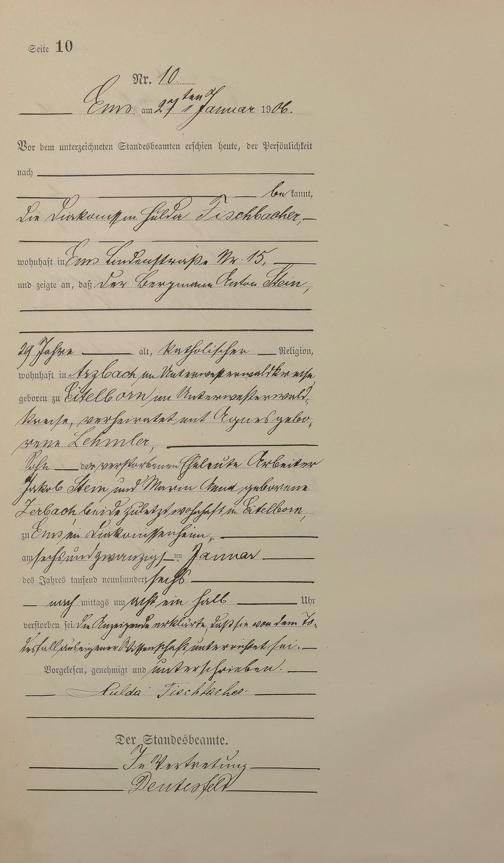 Seite 10
Nr. 10
Ems am 27ten Januar 1906.
Vor dem unterzeichneten Standesbeamten erschien heute, der Persönlichkeit
nach
bekannt,
die Diakonissin Hulda Fischbacher,
wohnhaft in Ems Lindenstraße Nr. 15,
und zeigte an, daß der Bergmann Anton Stein,
29 Jahre alt, katholischer Religion,
wohnhaft in Arzbach, im Unterwesterwaldkreise
geboren zu Eitelborn, im Unterwesterwald,
kreise, verheiratet mit Agnes gebo,
rene Lehmler,
Sohn der verstorbenen Eheleute Arbeiter
Jakob Stein und Maria Anna geborene
Zerbach beide zuletzt wohnhaft in Eitelborn,
zu Ems im Diakonissenheim,
am sechsundzwanzigsten Januar
des Jahres tausend neunhundert sechs
nachmittags um acht ein halb Uhr
verstorben sei. Die Anzeigende erklärte, daß sie von dem To,
desfall aus eigener Wissenschaft unterrichtet sei.
Vorgelesen, genehmigt und unterschrieben.
Hulda Fischbacher
Der Standesbeamte.
In Vertretung